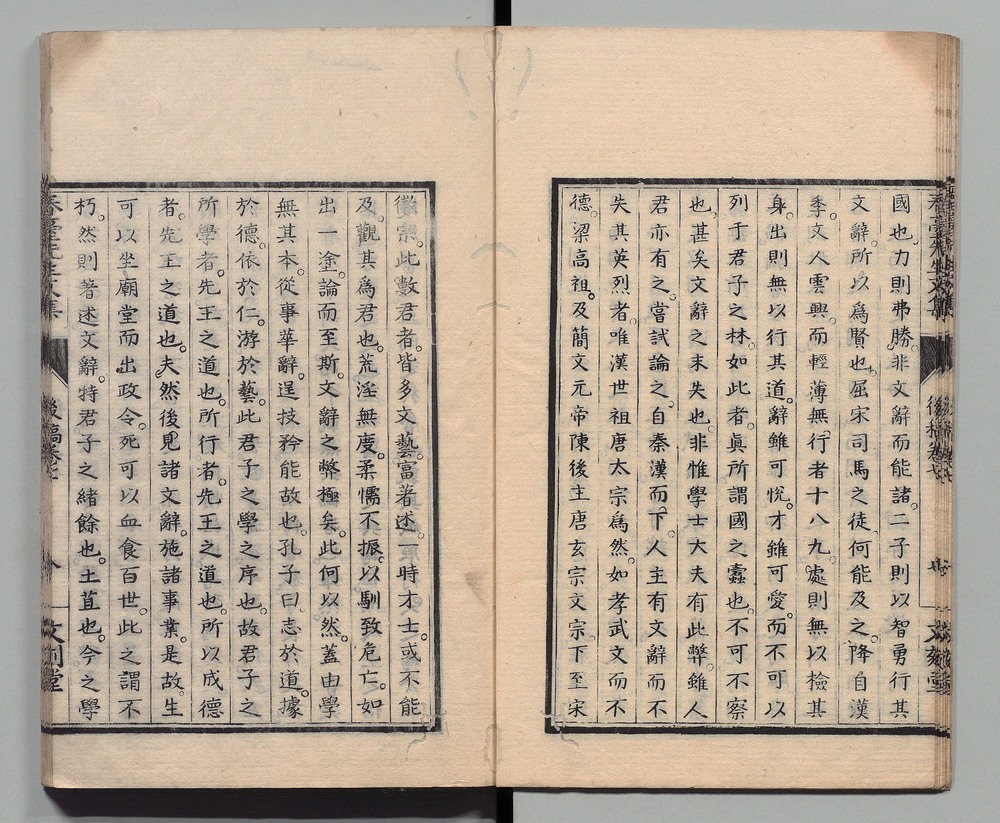 國也。力則弗勝。非文辭而能諸。二子則以智勇行其
文辭。所以爲賢也。屈宋司馬之徒。何能及之。降自漢
季。文人雲興。而輕薄無行者十八九。處則無以檢其
身。出則無以行其道。辭雖可悅。才雖可愛。而不可以
列于君子之林。如此者。眞所謂國之蠹也。不可不察
也。甚矣文辭之末失也。非惟學士大夫有此弊。雖人
君亦有之。嘗試論之。自秦漢而下。人主有文辭而不
失其英烈者。唯漢世祖唐太宗爲然。如孝武文而不
德。梁高祖。及簡文元帝陳後主唐玄宗文宗。下至宋
徽宗。此數君者。皆多文藝。富著述。一時才士。或不能
及。觀其爲君也。荒淫無度。柔懦不振。以馴致危亡。如
出一塗。論而至斯。文辭之弊極矣。此何以然。蓋由學
無其本。從事華辭。逞技矜能故也。孔子曰。志於道。據
於德。依於仁。游於藝。此君子之學之序也。故君子之
所學者。先王之道也。所行者。先王之道也。所以成德
者。先王之道也。夫然後見諸文辭。施諸事業。是故。生
可以坐廟堂而出政令。死可以血食百世。此之謂不
朽。然則著述文辭。特君子之緒餘也。土苴也。今之學
春臺先生文集
後稿卷七